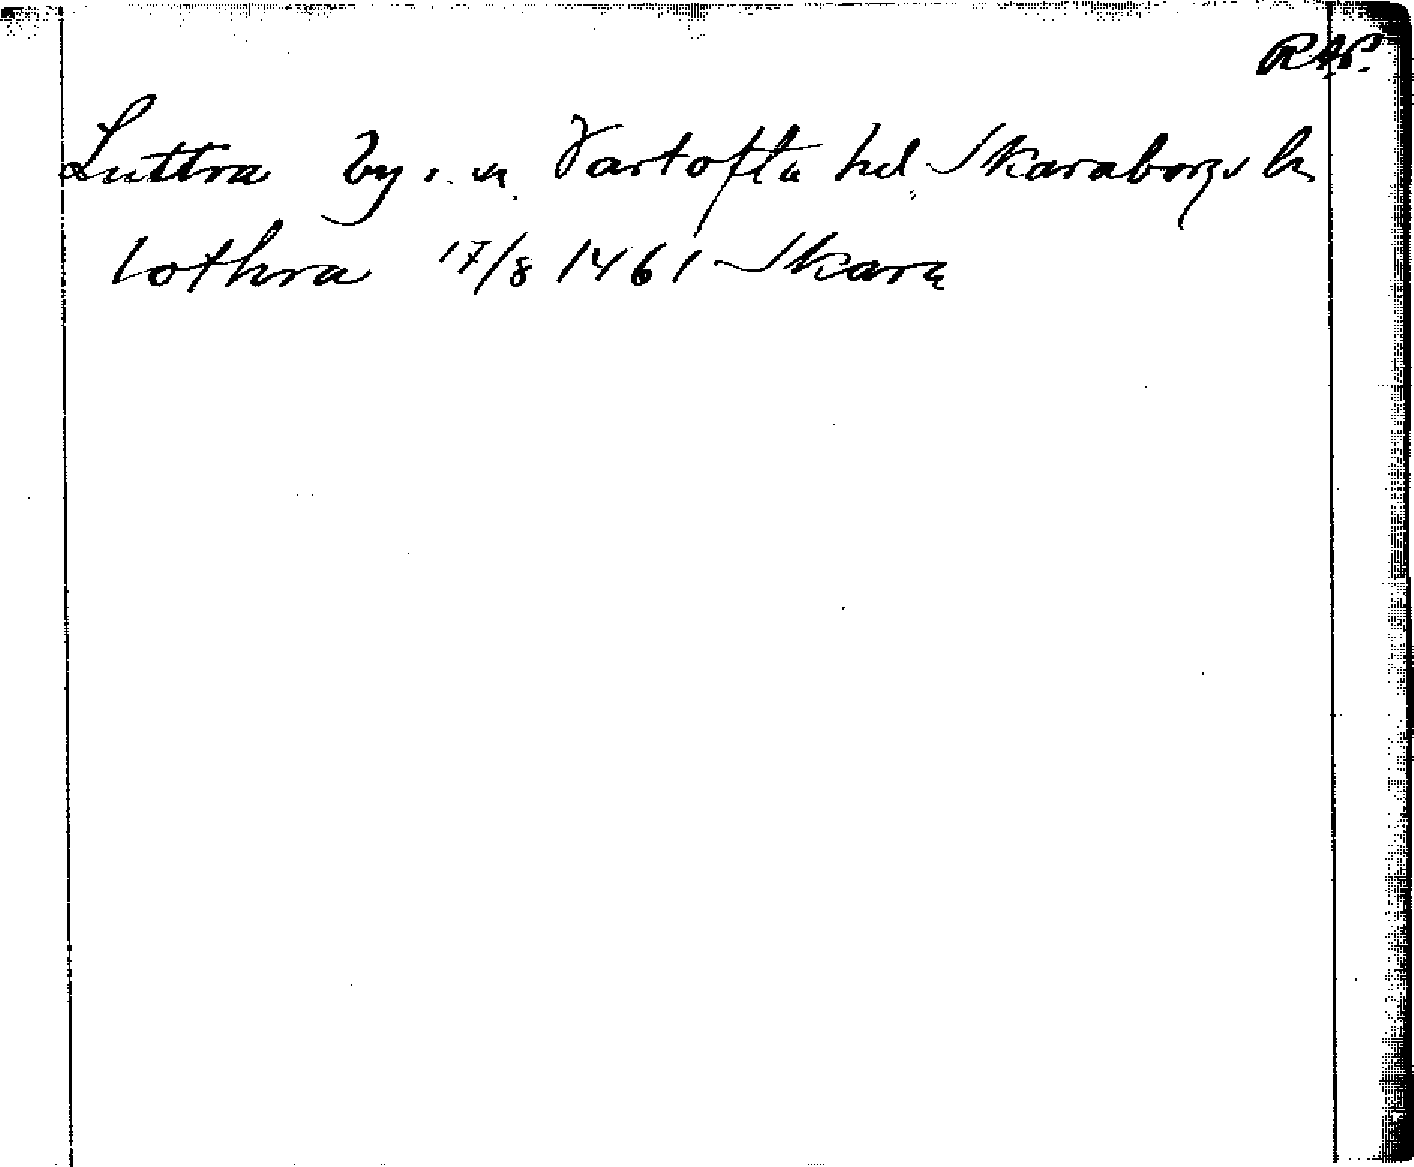 RAP.
Luttra by o. sn Vartofta hd Skaraborgs l.
lothra 17/8 1461 Skara